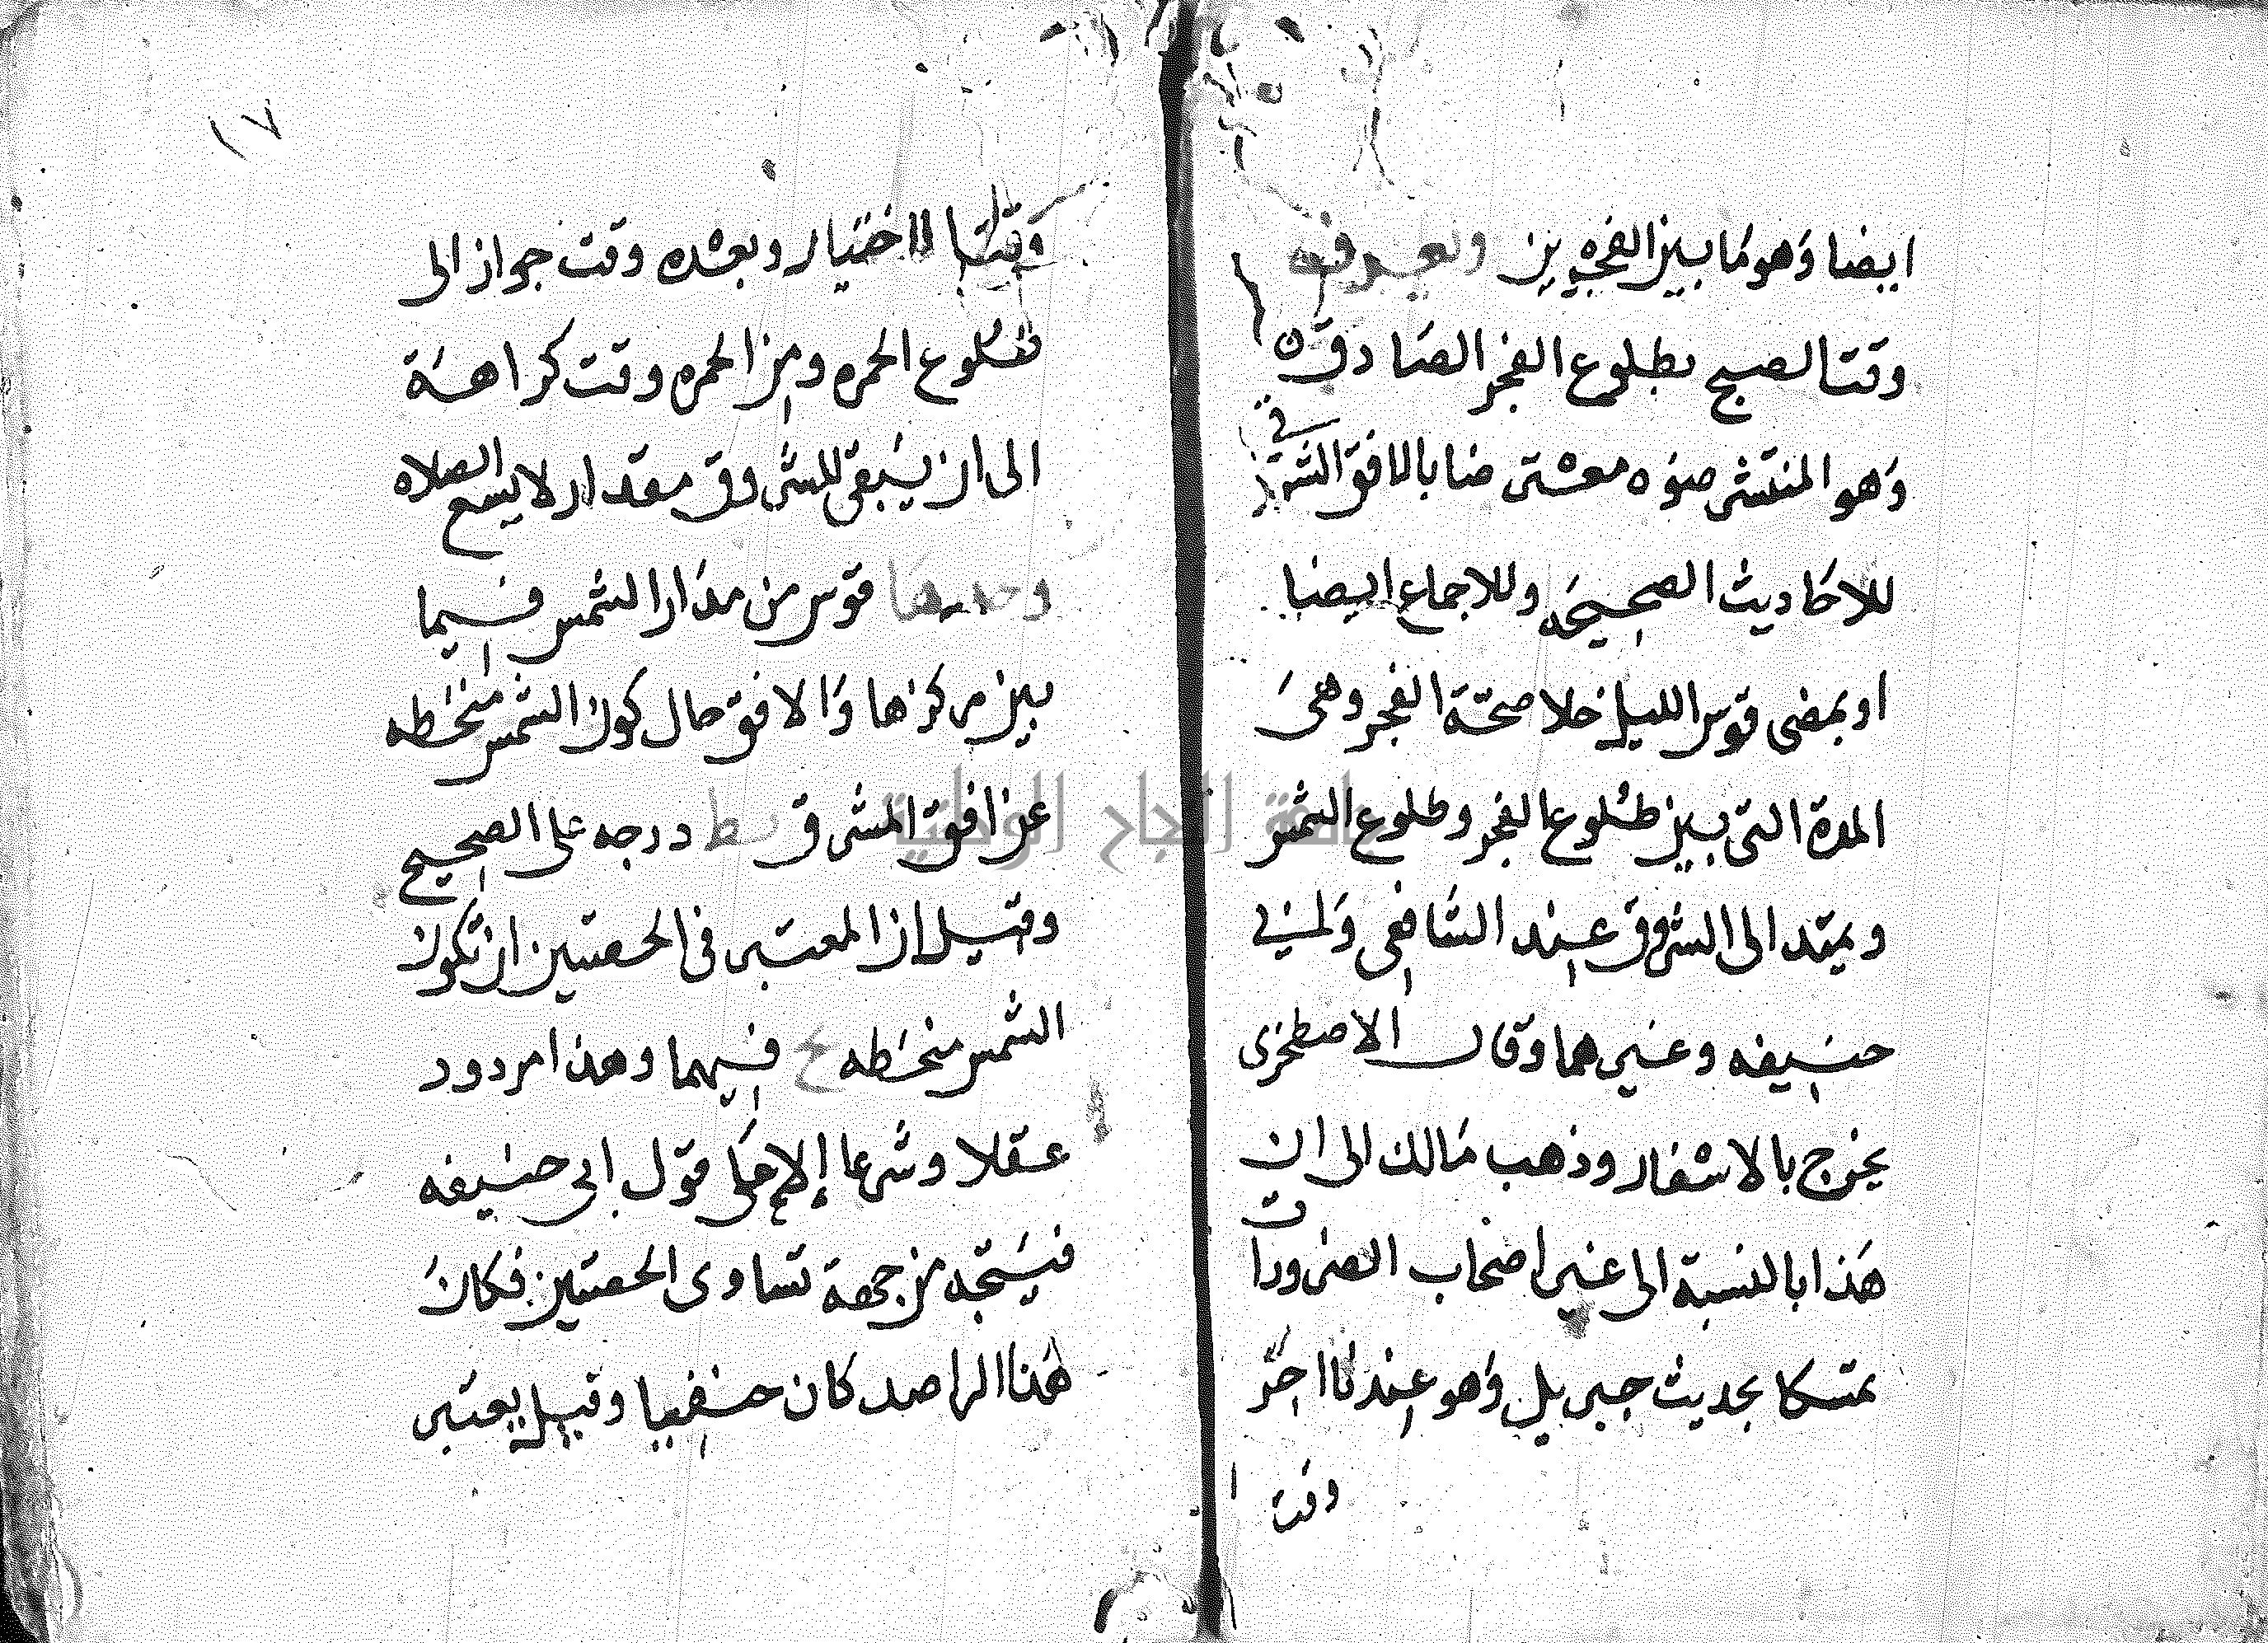 ايضا وهو ما بين الفجرين ويعرف
وقت الصبح بطلوع الفجر الصادق
وهو المنتشر ضوءه معترضا بالافق الشرقي
للاحاديث الصحيحه وللاجماع ايضا
او بمضي قوس الليل خلا حصة الفجر وهي
المدة التي بين طلوع الفجر وطلوع الشمس
ويمتد الى الشروق عند الشافعي
حنيفه وغيرهما وقال الاصطخري
يخرج بالاسفار وذهب مالك الى ان
هذا بالنسبة الى غير اصحاب الضرورات
تمسكا بحديث جبريل وهو عندنا اخر
وقت
١٧
وقت الاختيار وبعده وقت جواز الى
طلوع الحمره ومن الحمره وقت كراهة
الى ان يبقى للشروق مقدار لا يسع الصلاه
قوس من مدار الشمس فيما
بين مركزها والافق حال كون الشمس منحطه
عن افق المشرق يط درجه على الصحيح
وقيل ان المعتبر في الحصتين ان تكون
الشمس منحطه فيهما وهذا مردود
عقلا وشرعا إلا على قول ابي حنيفه
فيتجه من جهة تساوى الحصتين فكان
هذا الراصد كان حنفيا وقيل يعتبر
جامعة النجاح الوطنية